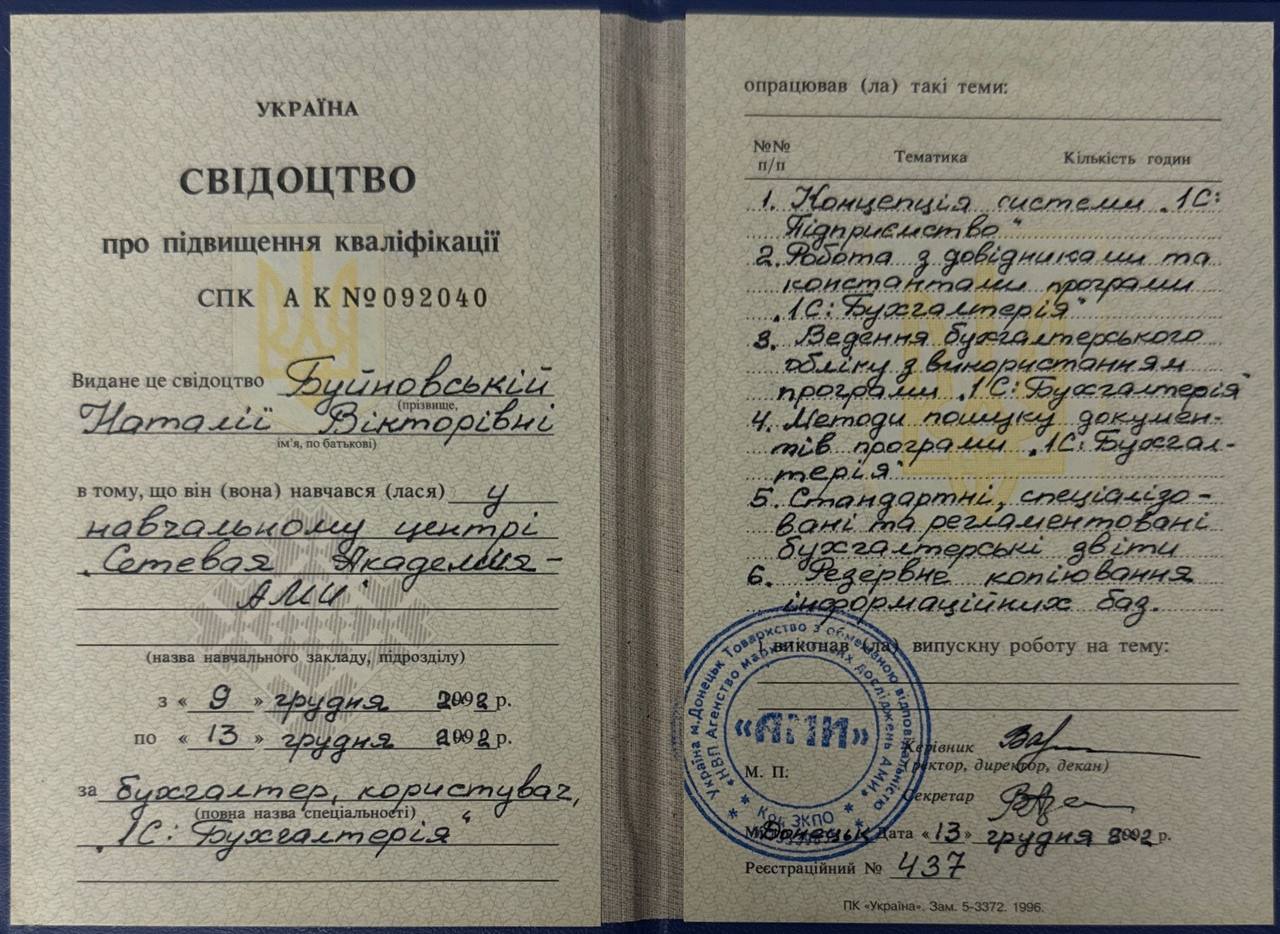 УКРАЇНА
СВІДОЦТВО
про підвищення кваліфікації
СПК А К №092040
Видане це свідоцтво Буйновській
(прізвище,
Наталії Вікторівні
ім'я, по батькові)
в тому, що він (вона) навчався (лася) у
навчальному центрі
„Сетевая Академия-
АМИ"
(назва навчального закладу, підрозділу)
з « 9 » грудня 2002 р.
по « 13 » грудня 2002 р.
за бухгалтер, користувач,
(повна назва спеціальності)
„1С: Бухгалтерія"
опрацював (ла) такі теми:
№№ п/п Тематика Кількість годин
1. Концепція системи „1С:
Підприємство"
2. Робота з довідниками та
константами програми
„1С: Бухгалтерія"
3. Ведення бухгалтерського
обліку з використанням
програми „1С: Бухгалтерія"
4. Методи пошуку докумен-
тів програми „1С: Бухгал-
терія"
5. Стандартні, спеціалізо-
вані та регламентовані
бухгалтерські звіти
6. Резервне копіювання
інформаційних баз.
і виконав (ла) випускну роботу на тему:
Україна м.Донецьк Товариство з обмеженою відповідальністю
«НВП Агенство маркетингових досліджень АМИ»
«АМИ»
Код ЗКПО
Керівник
(ректор, директор, декан)
М. П.
Секретар
Донецьк Дата « 13 » грудня 2002 р.
Реєстраційний № 437
ПК «Україна». Зам. 5-3372. 1996.